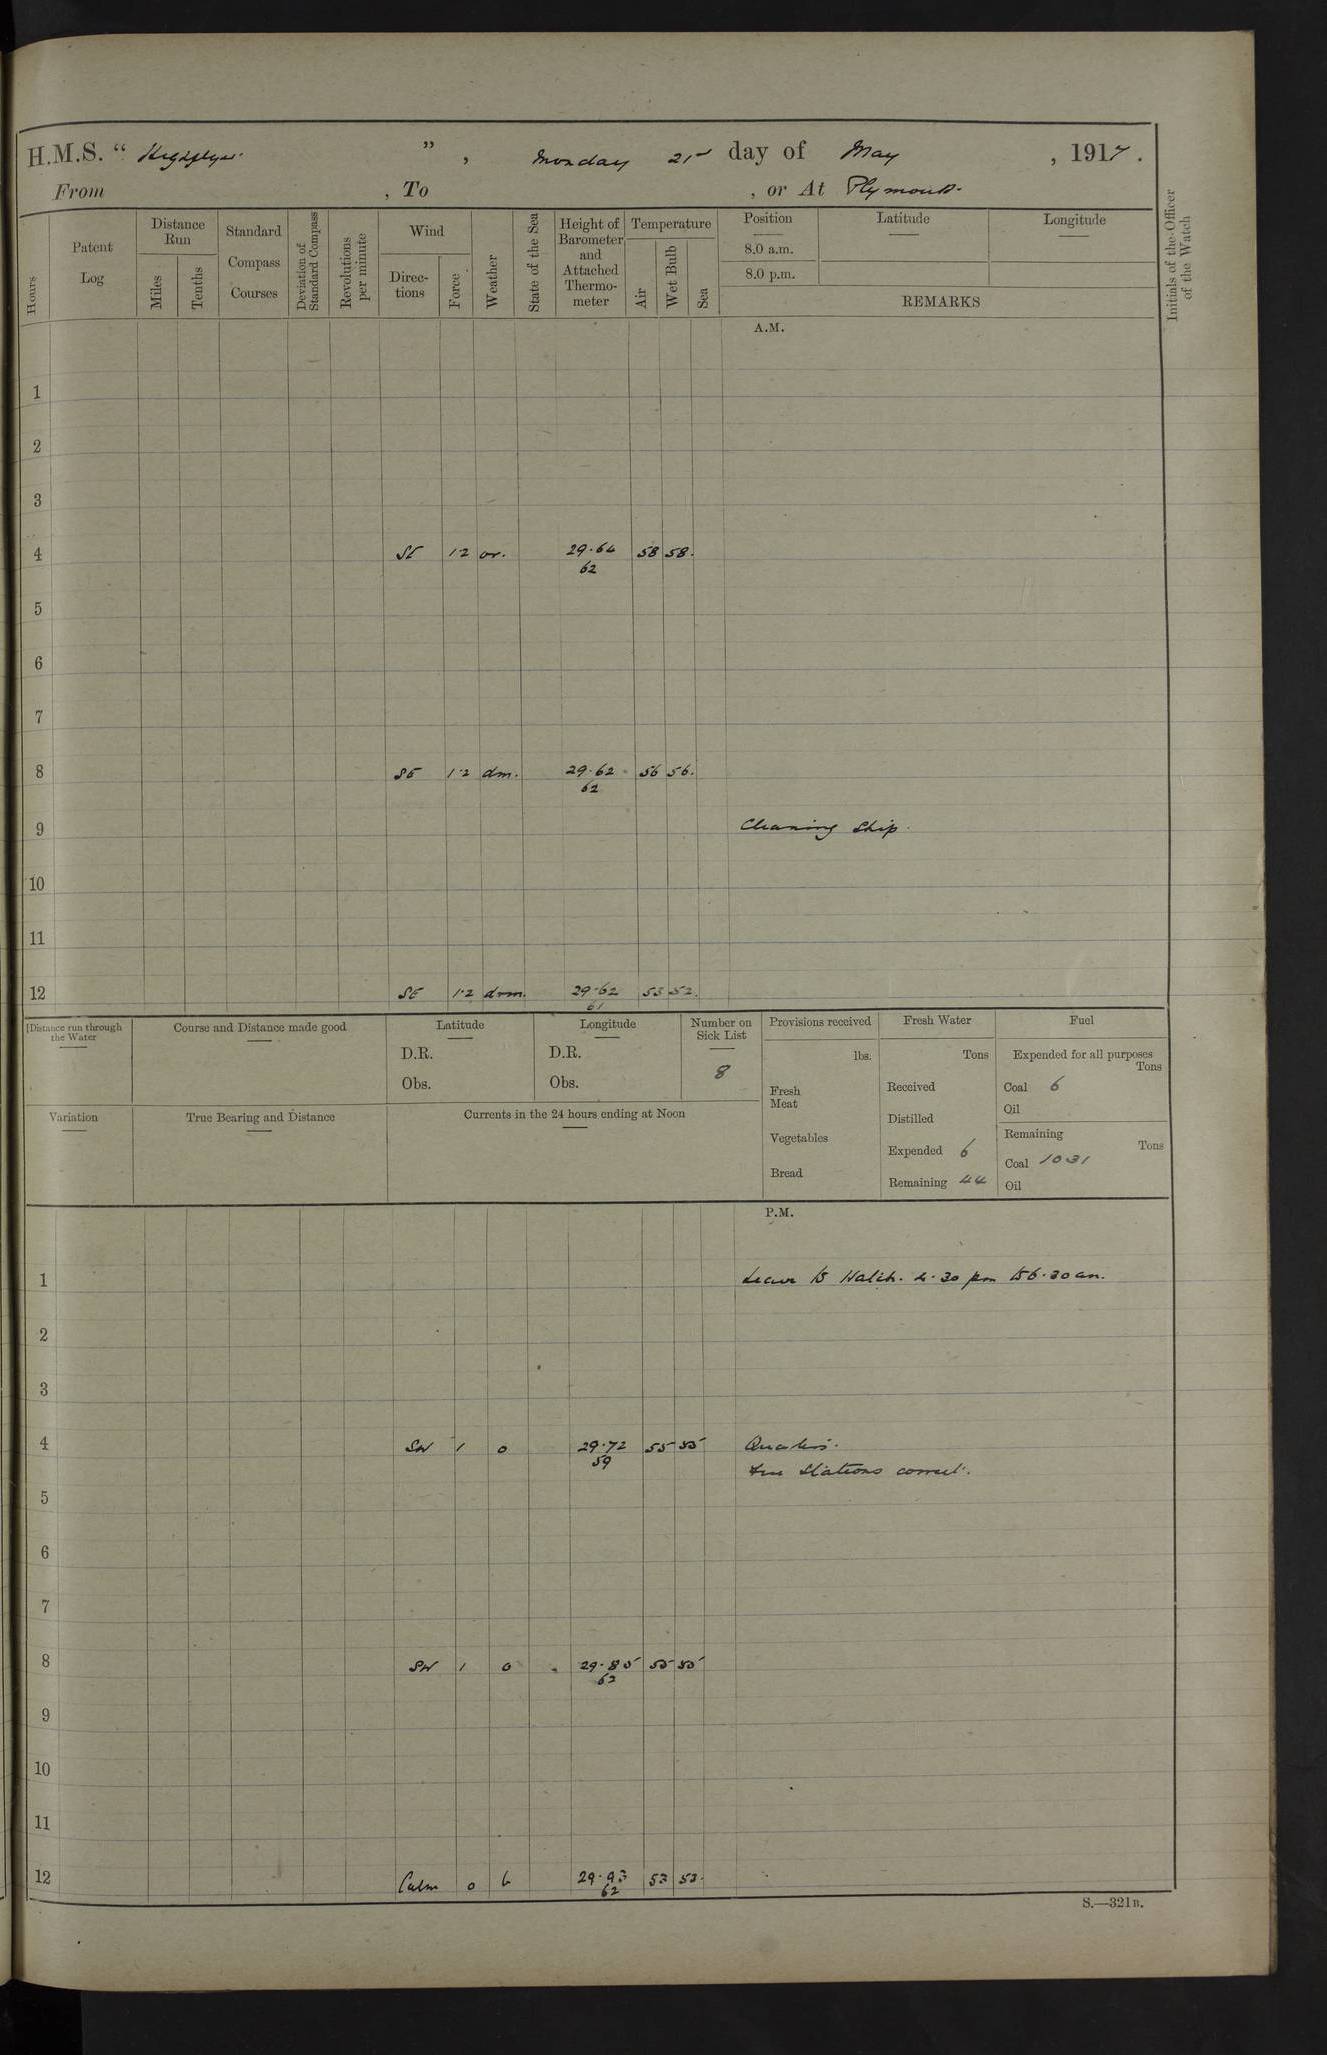 H.M.S. “ Highflyer ” , Monday 21st day of May , 1917 .
From , To , or At Plymouth.
Hours
Patent Log
Distance Run
Miles
Tenths
Standard Compass Courses
Deviation of Standard Compass
Revolutions per minute
Wind
Direc-tions
Force
Weather
State of the Sea
Height of Barometer and Attached Thermo-meter
Temperature
Air
Wet Bulb
Sea
Position
8.0 a.m.
8.0 p.m.
Latitude
Longitude
REMARKS
Initials of the Officer of the Watch
A.M.
1
2
3
4 SE 1·2 or. 29·64 58 58.
62
5
6
7
8 SE 1·2 dm. 29·62 56 56.
62
9 Cleaning Ship.
10
11
12 SE 1·2 drm. 29·62 53 52.
61
Distance run through the Water
Course and Distance made good
Latitude
D.R.
Obs.
Longitude
D.R.
Obs.
Number on Sick List
8
Provisions received
lbs.
Fresh Meat
Vegetables
Bread
Fresh Water
Tons
Received
Distilled
Expended 6
Remaining 44
Fuel
Expended for all purposes
Tons
Coal 6
Oil
Remaining
Tons
Coal 1031
Oil
Variation
True Bearing and Distance
Currents in the 24 hours ending at Noon
P.M.
1 Leave to Watch. 4·30 pm to 6·30 am.
2
3
4 SW 1 o 29·72 55 55 Quarters.
59 Fire Stations correct.
5
6
7
8 SW 1 o 29·85 55 55
62
9
10
11
12 Calm 0 b 29·93 53 53.
62
S.—321B.